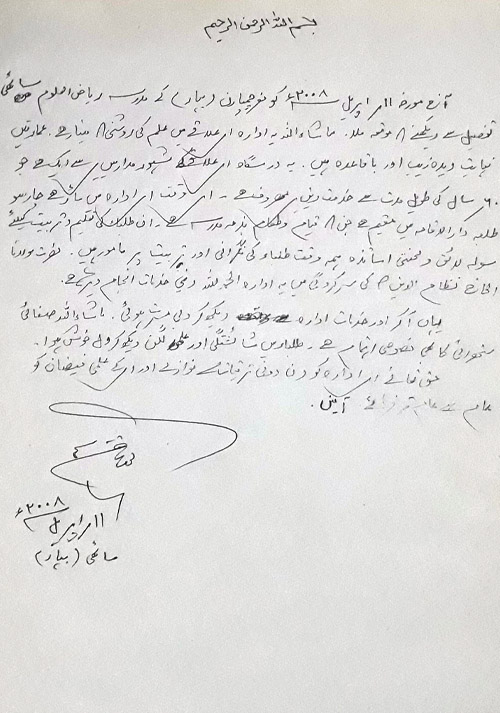 بسم اللہ الرحمن الرحیم
آج مورخہ ۱۱ اپریل ۲۰۰۸ء کو چمپارن (بہار) کے مدرسہ ریاض العلوم ساٹھی
تفصیل سے دیکھنے کا موقعہ ملا۔ ماشاءاللہ یہ ادارہ اس علاقے میں علم کی روشنی کا مینار ہے۔ عمارتیں
نہایت دیدہ زیب اور باقاعدہ ہیں۔ یہ درسگاہ اس علاقے کے مشہور مدارس میں سے ایک ہے جو
۶۰ سال کی طویل مدت سے خدمت دین میں مصروف ہے۔ اس وقت اس ادارہ میں ساڑھے چار سو
طلبہ دارالاقامہ میں مقیم ہے جن کا قیام و طعام بذمہ مدرسہ ہے۔ ان طلباء کی تعلیم و تربیت کیلئے
سولہ لائق و محنتی اساتذہ ہمہ وقت طلباء کی نگرانی اور تربیت پر مامور ہیں۔ حضرت مولانا
الحاج نظام الدین کی سرکردگی میں یہ ادارہ الحمد للہ دینی خدمات انجام دے رہا ہے۔
یہاں آکر اور خدمات ادارہ دیکھ کر دلی مسرت ہوئی۔ ماشاءاللہ صفائی
ستھرائی کا بھی خصوصی اہتمام ہے۔ طلباء میں شائستگی اور علمی لگن دیکھ کر دل خوش ہوا۔
حق تعالے اس ادارہ کو دن دونی ترقیات سے نوازے اور اسکے علمی فیضان کو
عام سے عام تر فرمائے آمین۔
۱۱ اپریل ۲۰۰۸ء
ساٹھی (بہار)